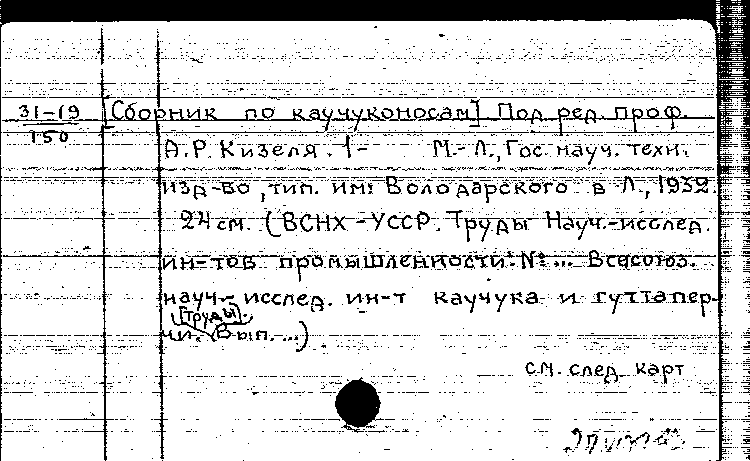 31-19
150
[Сборник по каучуконосам] Под ред. проф.
А.Р. Кизеля. 1- М.-Л., Гос. науч. техн.
изд-во, тип. им. Володарского в Л., 1932.
24 см. (ВСНХ-УССР. Труды Науч.-исслед.
ин-тов промышленности. № ... Всесоюз.
науч.-исслед. ин-т каучука и гуттапер-
[Труды].
чи. (Вып. ...)
см. след. карт